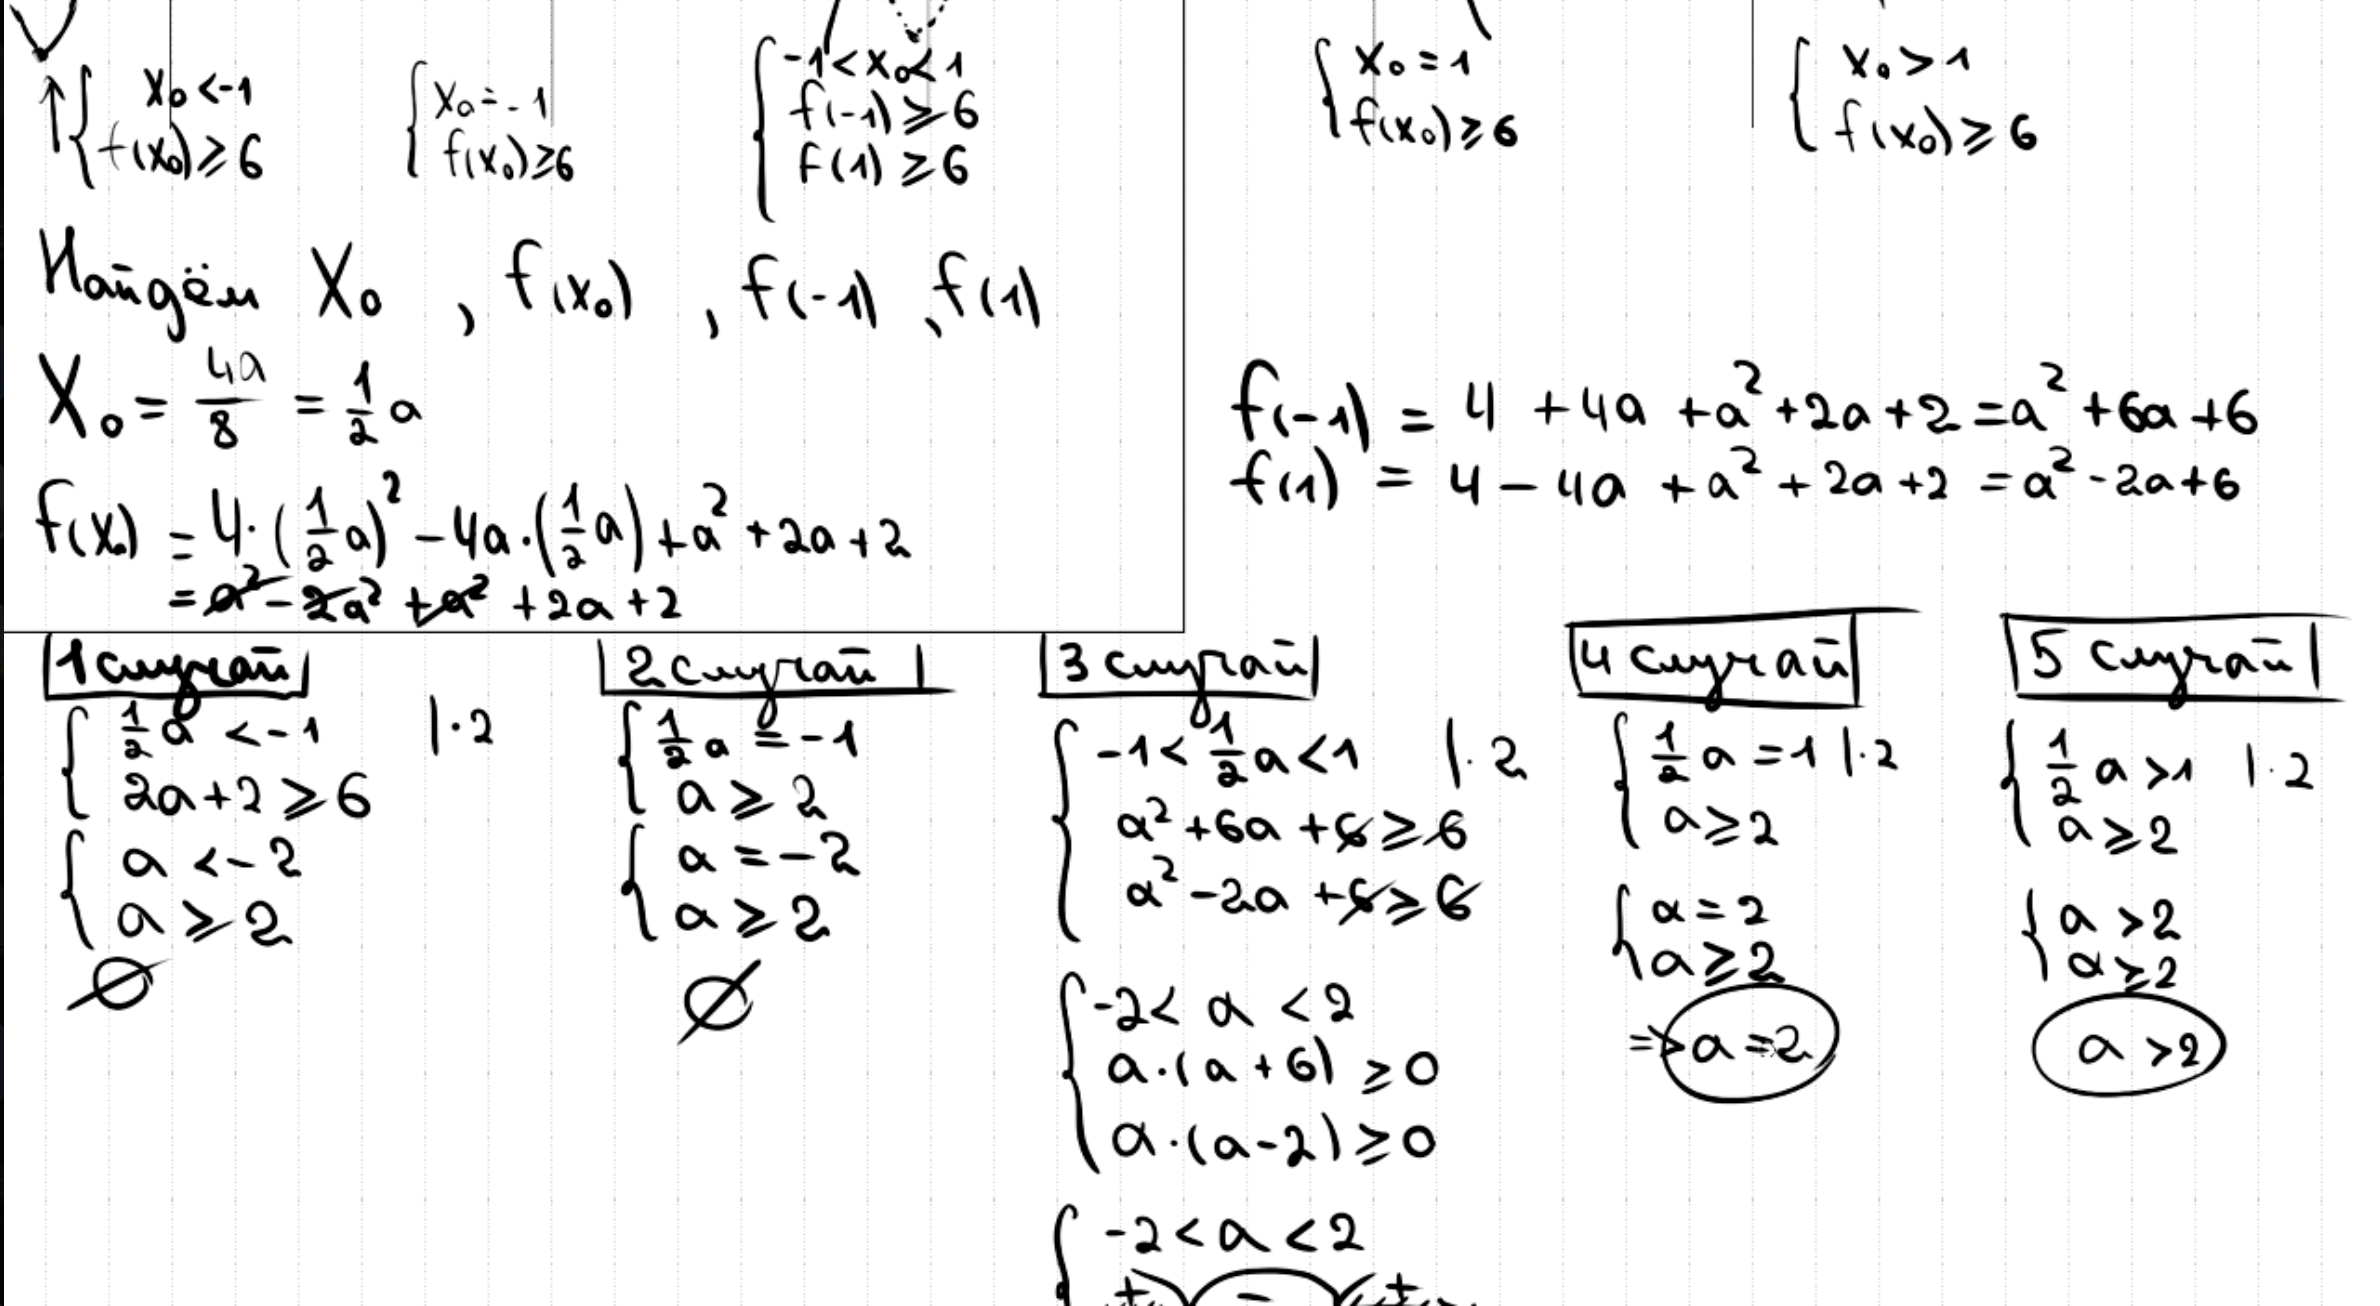 x₀ < -1
f(x₀) ≥ 6
x₀ = -1
f(x₀) ≥ 6
-1 < x₀ < 1
f(-1) ≥ 6
f(1) ≥ 6
x₀ = 1
f(x₀) ≥ 6
x₀ > 1
f(x₀) ≥ 6
Найдём x₀ , f(x₀) , f(-1) , f(1)
x₀ = 4a/8 = 1/2 a
f(x₀) = 4·(1/2 a)² - 4a·(1/2 a) + a² + 2a + 2
= a² - 2a² + a² + 2a + 2
f(-1) = 4 + 4a + a² + 2a + 2 = a² + 6a + 6
f(1) = 4 - 4a + a² + 2a + 2 = a² - 2a + 6
1 случай
1/2 a < -1 |·2
2a + 2 ≥ 6
a < -2
a ≥ 2
∅
2 случай
1/2 a = -1
a ≥ 2
a = -2
a ≥ 2
∅
3 случай
-1 < 1/2 a < 1 |·2
a² + 6a + 6 ≥ 6
a² - 2a + 6 ≥ 6
-2 < a < 2
a·(a + 6) ≥ 0
a·(a - 2) ≥ 0
-2 < a < 2
+ - +
4 случай
1/2 a = 1 |·2
a ≥ 2
a = 2
a ≥ 2
=> a = 2
5 случай
1/2 a > 1 |·2
a ≥ 2
a > 2
a ≥ 2
a > 2